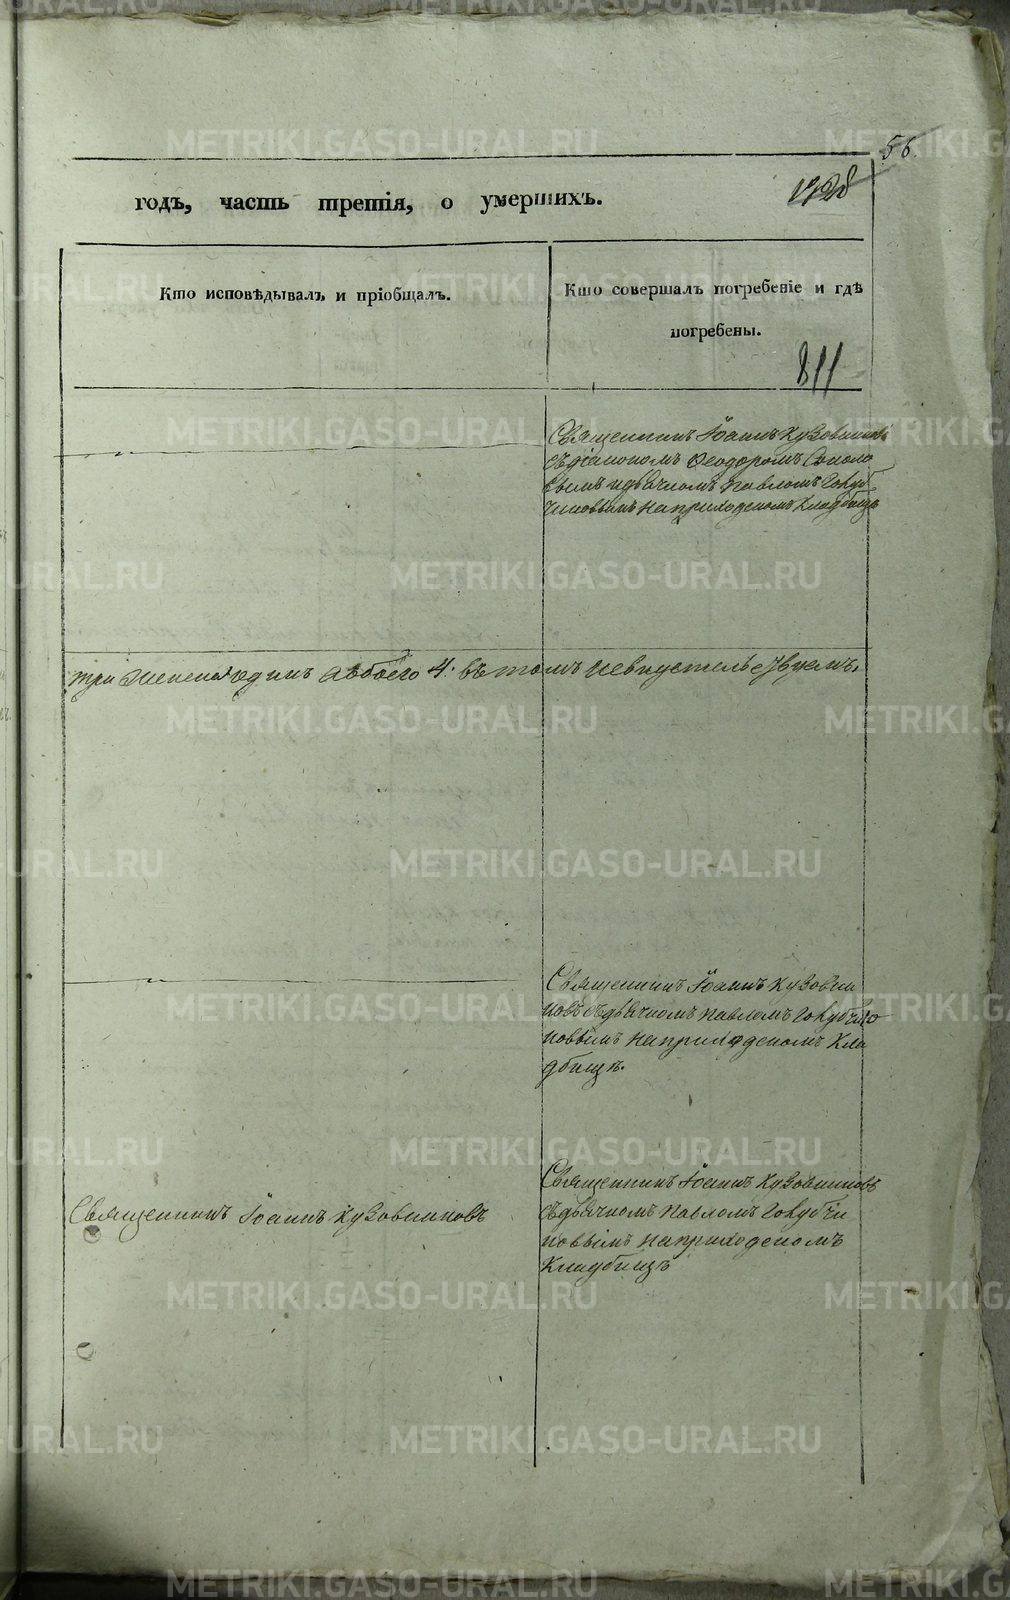 56.
годъ, часть третія, о умершихъ.
Кто исповѣдывалъ и пріобщалъ.
Кто совершалъ погребеніе и гдѣ
погребены.
811
Священникъ Іоаннъ Кузовников
съ діакономъ Феодоромъ Соколо
вымъ и дьячкомъ Павломъ Голуб
чиковымъ на приходскомъ кладбищѣ
три женска один обоего 4. въ томъ
Священникъ Іоаннъ Кузовни
ковъ съ дьячкомъ Павломъ Голубчи
ковымъ на приходскомъ кла
дбищѣ.
Священникъ Іоаннъ Кузовниковъ
Священникъ Іоаннъ Кузовниковъ
съ дьячкомъ Павломъ Голубчи
ковымъ на приходскомъ
кладбищѣ
METRIKI.GASO-URAL.RU